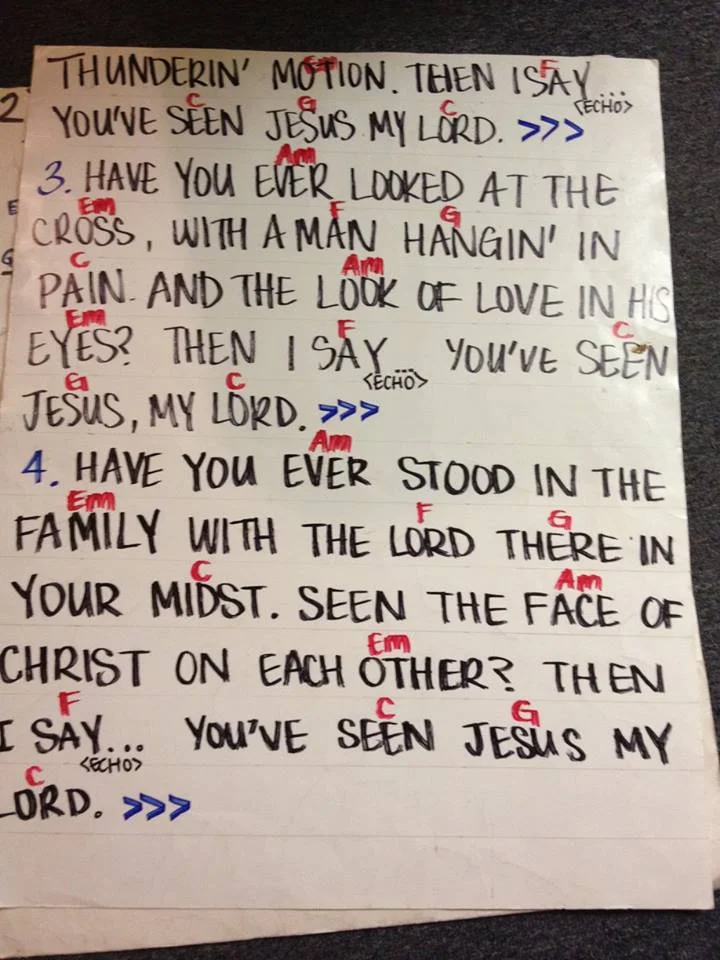 Em F
THUNDERIN' MOTION. THEN I SAY...
<ECHO>
C G C
YOU'VE SEEN JESUS MY LORD. >>>
Am
3. HAVE YOU EVER LOOKED AT THE
Em F G
CROSS, WITH A MAN HANGIN' IN
C Am
PAIN. AND THE LOOK OF LOVE IN HIS
Em F C
EYES? THEN I SAY... YOU'VE SEEN
<ECHO>
G C
JESUS, MY LORD. >>>
Am
4. HAVE YOU EVER STOOD IN THE
Em F G
FAMILY WITH THE LORD THERE IN
C Am
YOUR MIDST. SEEN THE FACE OF
Em
CHRIST ON EACH OTHER? THEN
F C G
I SAY... YOU'VE SEEN JESUS MY
<ECHO>
C
LORD. >>>
2
E
G